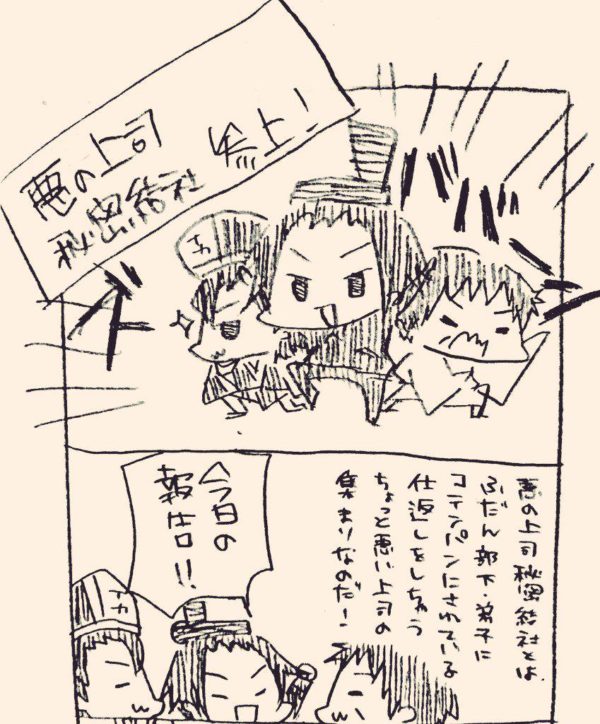 悪の上司
秘密結社
参上!
バーン
悪の上司秘密結社とは、
ふだん部下・弟子に
コテンパンにされている
仕返しをしちゃう
ちょっと悪い上司の
集まりなのだー!
今日の
報告!!